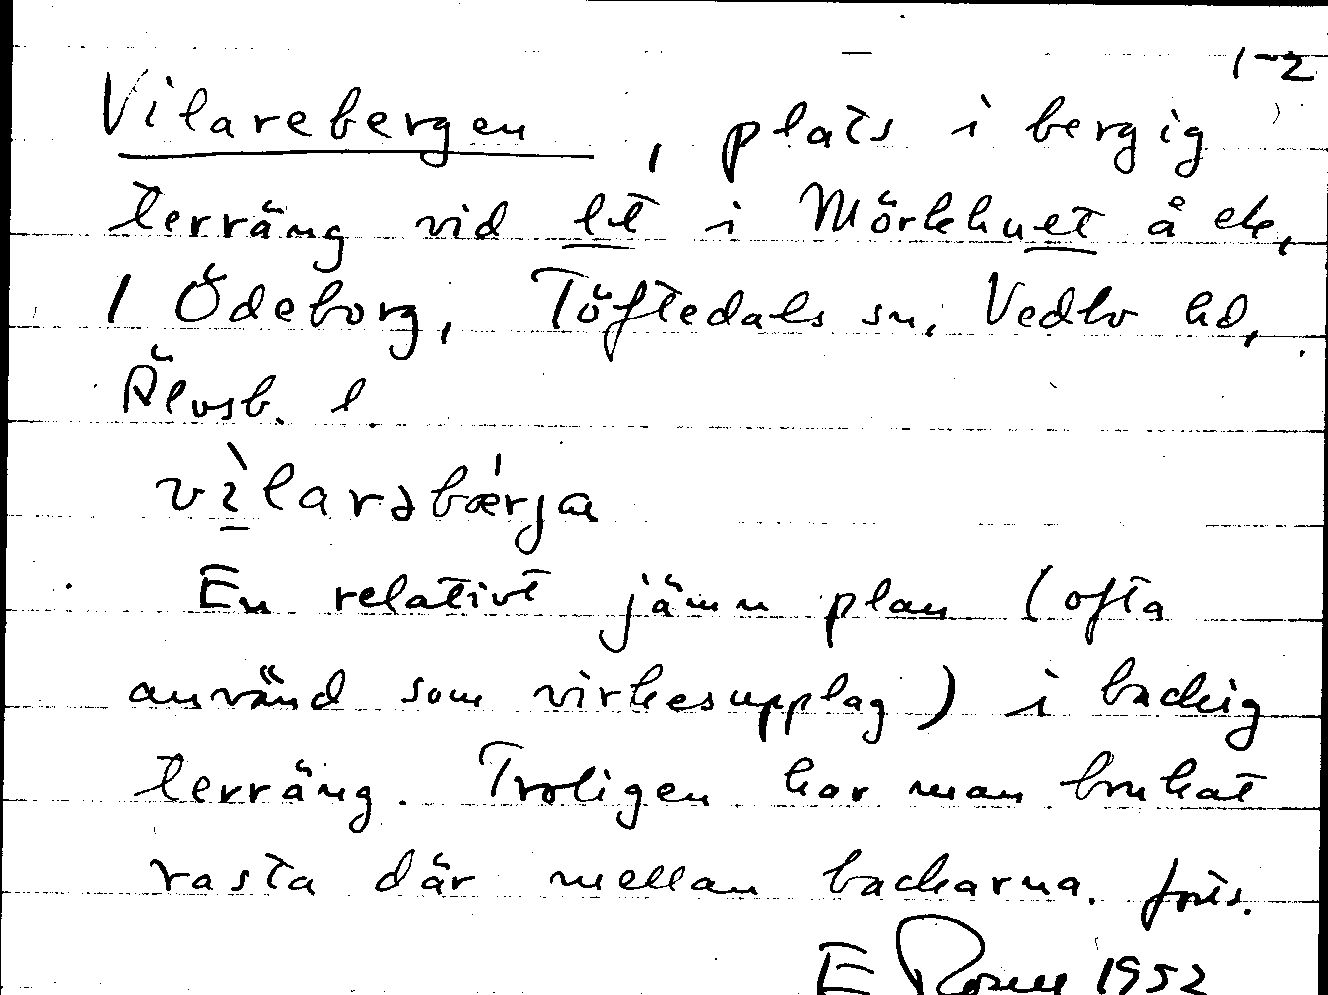 1-2
Vilarebergen, plats i bergig
terräng vid et i Mörkhuet å ek,
1 Ödeborg, Töftedals sn, Vedbo hd,
Älvsb. l.
vìlarəbǽrja
En relativt jämn plan (ofta
använd som virkesupplag) i backig
terräng. Troligen har man brukat
rasta där mellan backarna. forts.
E 1952